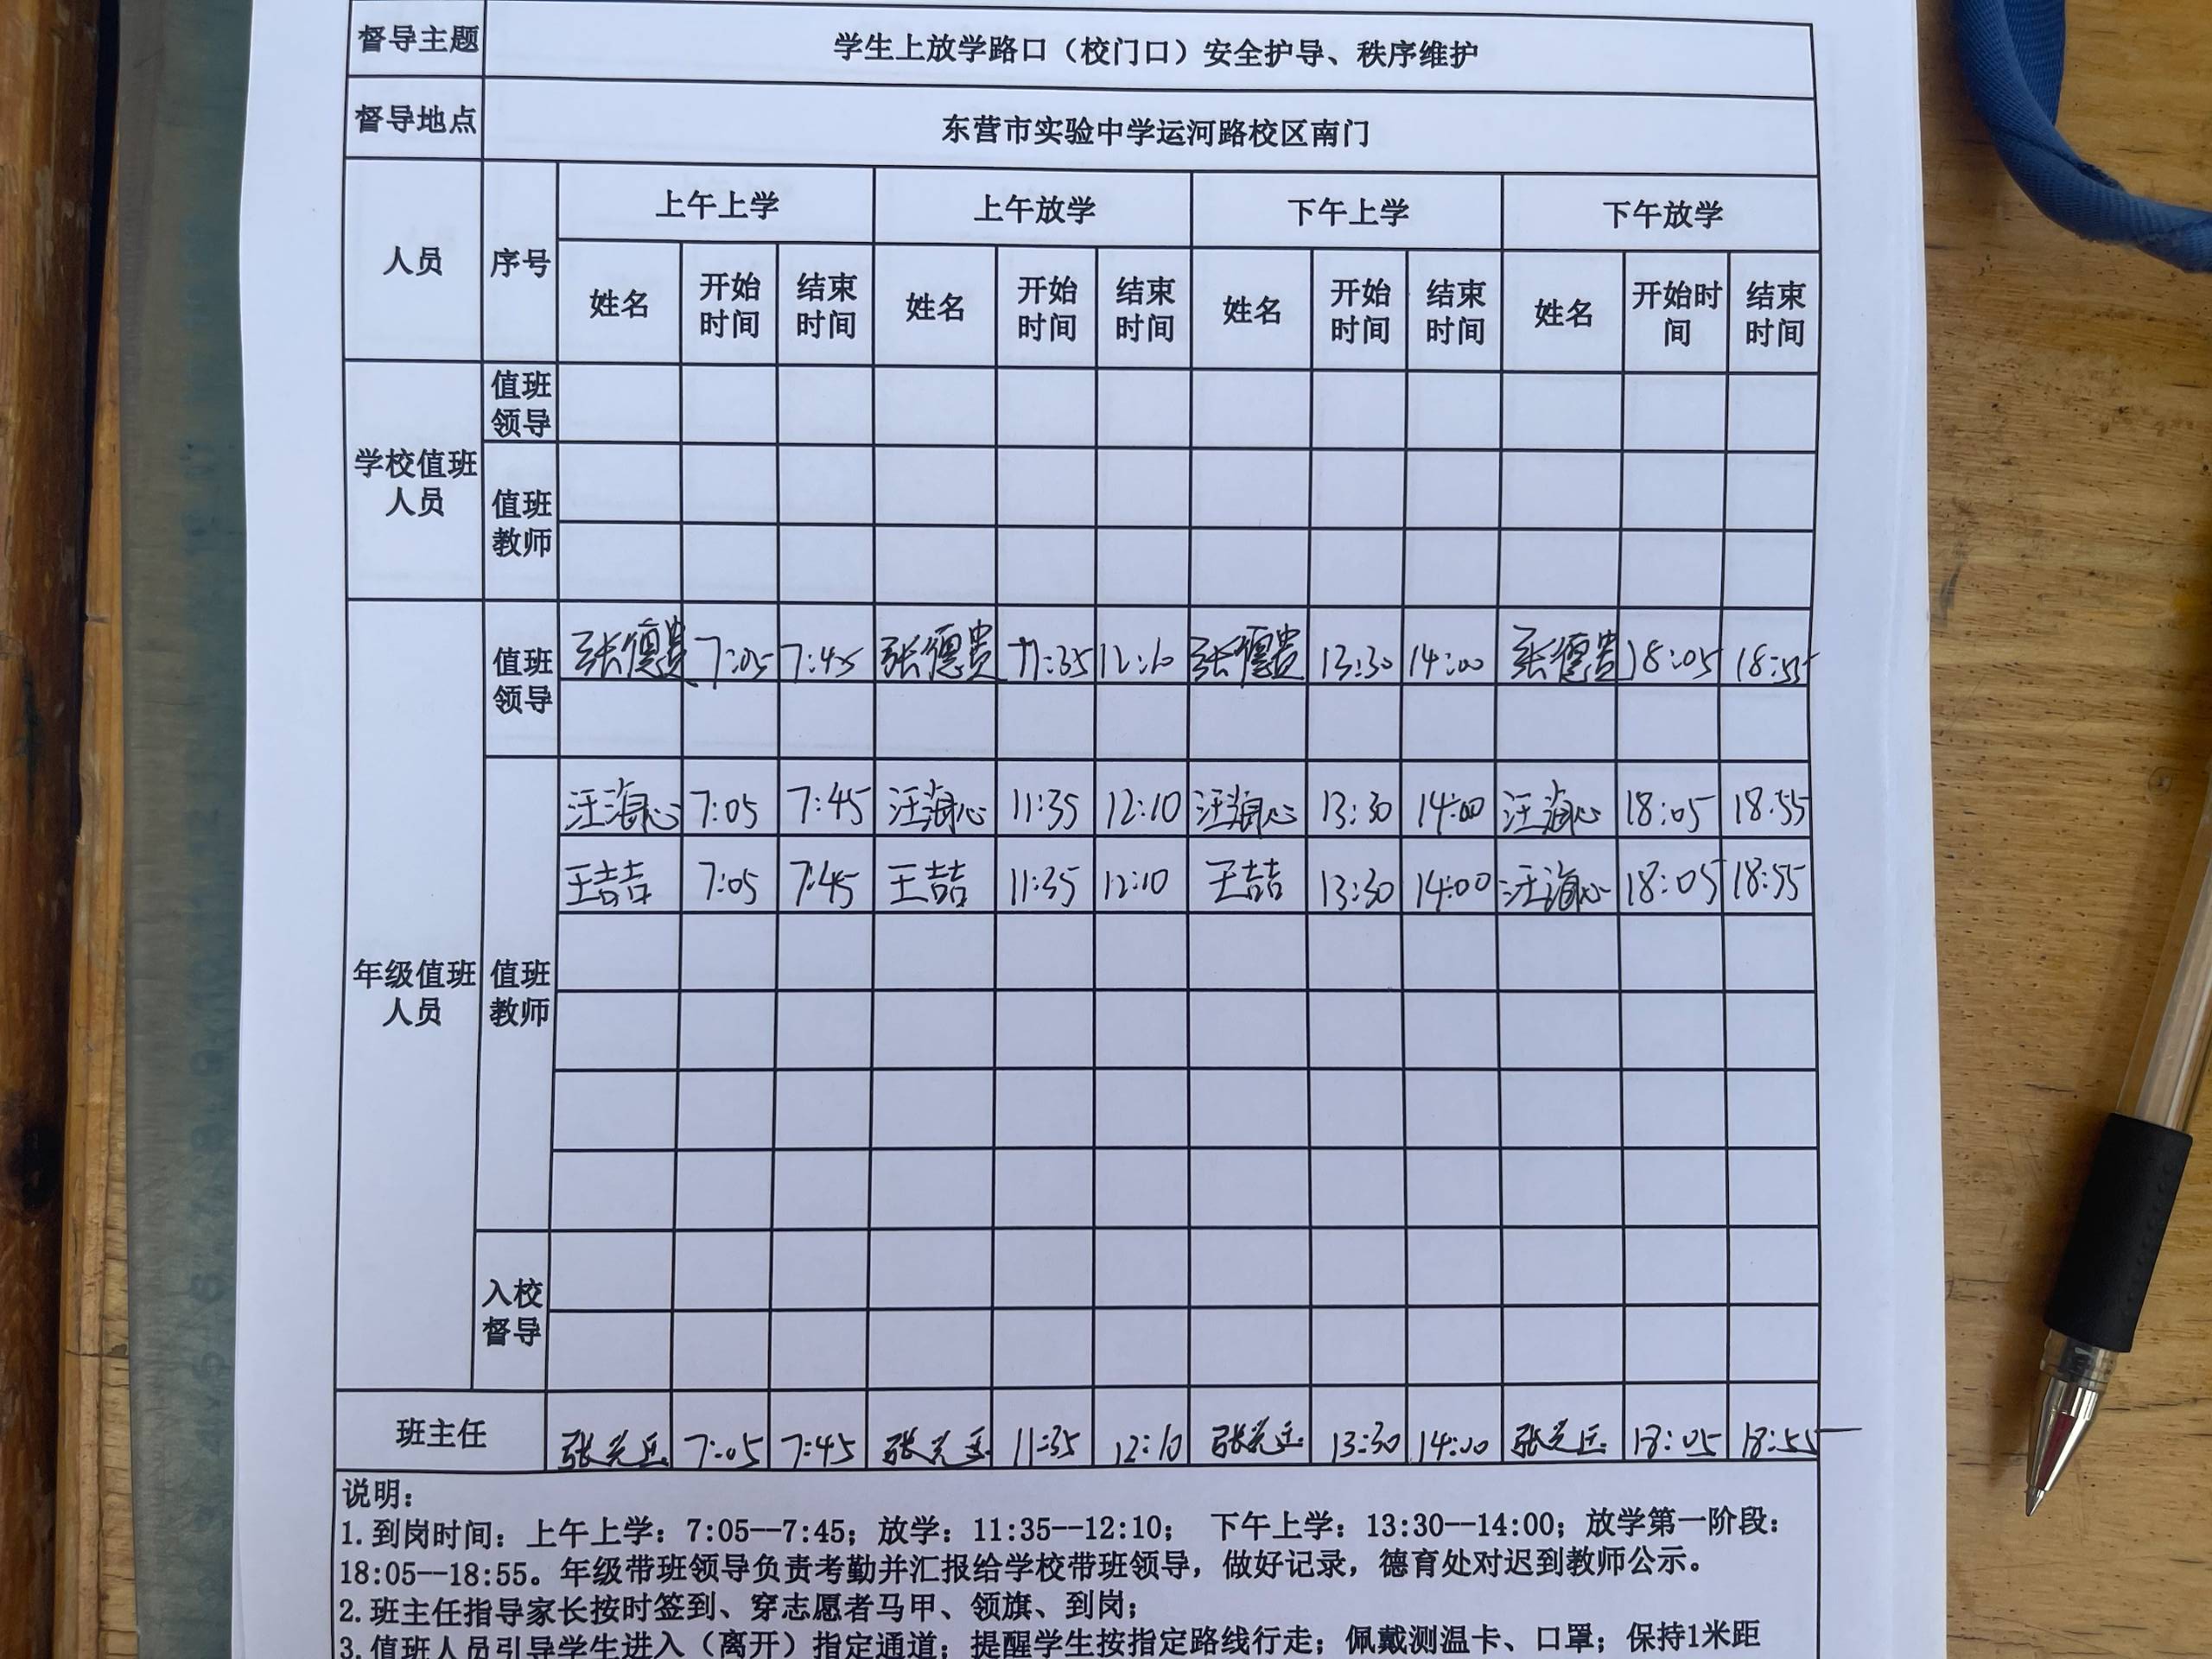 督导主题 学生上放学路口（校门口）安全护导、秩序维护
督导地点 东营市实验中学运河路校区南门
人员 序号 上午上学 上午放学 下午上学 下午放学
姓名 开始时间 结束时间 姓名 开始时间 结束时间 姓名 开始时间 结束时间 姓名 开始时间 结束时间
学校值班人员 值班领导
值班教师
年级值班人员 值班领导 张德贵 7:05 7:45 张德贵 11:35 12:10 张德贵 13:30 14:00 张德贵 18:05 18:55
值班教师 汪海心 7:05 7:45 汪海心 11:35 12:10 汪海心 13:30 14:00 汪海心 18:05 18:55
王喆 7:05 7:45 王喆 11:35 12:10 王喆 13:30 14:00 汪海心 18:05 18:55
入校督导
班主任 7:05 7:45 11:35 12:10 13:30 14:00 18:05 18:55
说明：
1.到岗时间：上午上学：7:05--7:45；放学：11:35--12:10； 下午上学：13:30--14:00；放学第一阶段：
18:05--18:55。年级带班领导负责考勤并汇报给学校带班领导，做好记录，德育处对迟到教师公示。
2.班主任指导家长按时签到、穿志愿者马甲、领旗、到岗；
3.值班人员引导学生进入（离开）指定通道；提醒学生按指定路线行走；佩戴测温卡、口罩；保持1米距